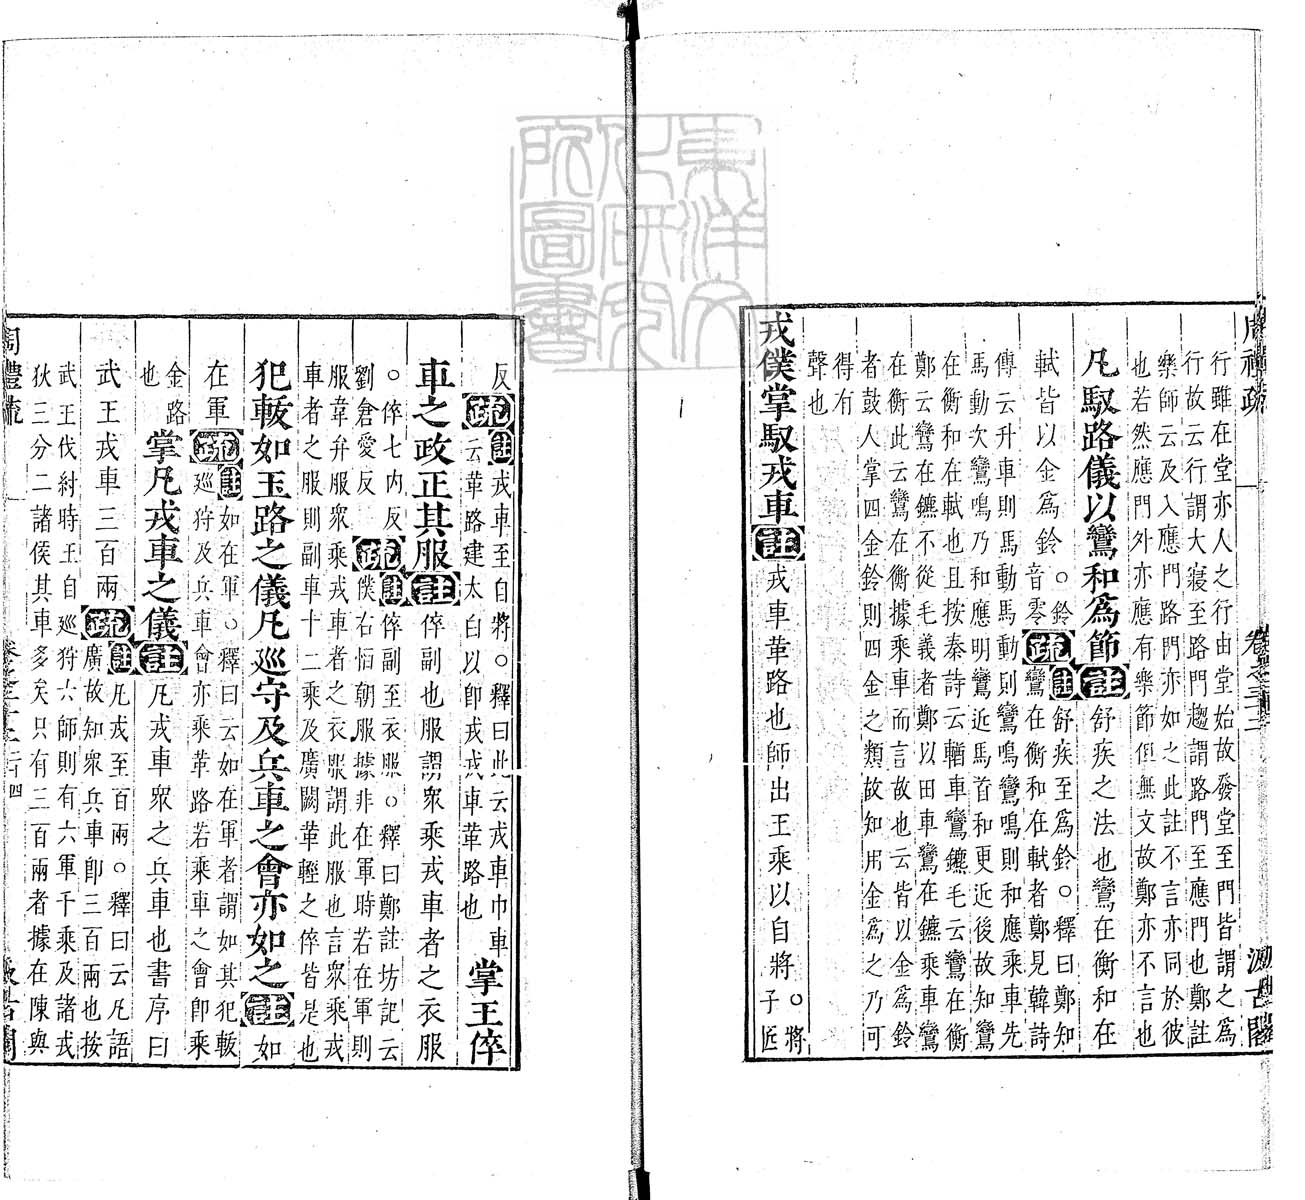 行雖在堂亦人之行由堂始故發堂至門皆謂之爲
行故云行謂大寢至路門趨謂路門至應門也鄭註
樂師云及入應門路門亦如之此註不言亦同於彼
也若然應門外亦應有樂節但無文故鄭亦不言也
凡馭路儀以鸞和爲節註舒疾之法也鸞在衡和在
軾皆以金爲鈴○鈴音零疏註舒疾至爲鈴○釋曰鄭知
鸞在衡和在軾者鄭見韓詩
傳云升車則馬動馬動則鸞鳴鸞鳴則和應乘車先
馬動次鸞鳴乃和應明鸞近馬首和更近後故知鸞
在衡和在軾也且按秦詩云輶車鸞鑣毛云鸞在衡
鄭云鸞在鑣不從毛義者鄭以田車鸞在鑣乘車鸞
在衡此云鸞在衡據乘車而言故也云皆以金爲鈴
者鼓人掌四金鈴則四金之類故知用金爲之乃可
得有
聲也
戎僕掌馭戎車註戎車革路也師出王乘以自將○將子匠
反疏註戎車至自將○釋曰此云戎車巾車
云革路建太白以卽戎戎車革路也
掌王倅
車之政正其服註倅副也服謂衆乘戎車者之衣服
○倅七内反
劉倉愛反疏註倅副至衣服○釋曰鄭註坊記云
僕右恒朝服據非在軍時若在軍則
服韋弁服衆乘戎車者之衣服謂此服也言衆乘戎
車者之服則副車十二乘及廣闕革輕之倅皆是也
犯軷如玉路之儀凡巡守及兵車之會亦如之註如
在軍疏註如在軍○釋曰云如在軍者謂如其犯軷
巡狩及兵車會亦乘革路若乘車之會卽乘
金路
也
掌凡戎車之儀註凡戎車衆之兵車也書序曰
武王戎車三百兩疏註凡戎至百兩○釋曰云凡語
廣故知衆兵車卽三百兩也按
武王伐紂時王自巡狩六師則有六軍千乘及諸戎
狄三分二諸侯其車多矣只有三百兩者據在陳與